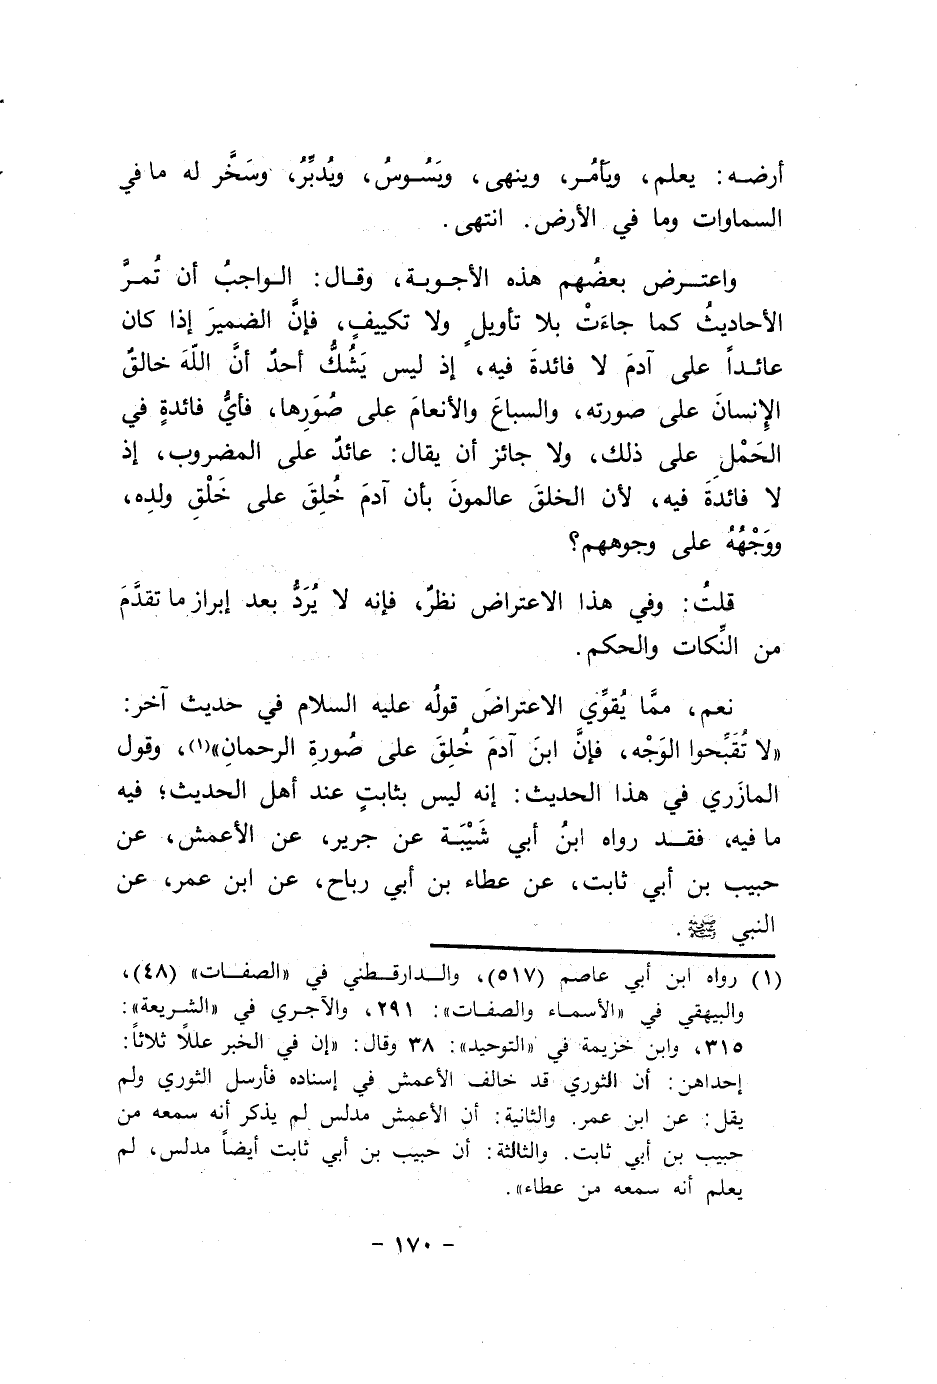 أرضه: يعلم، ويَأمُر، وينهى، ويَسُوسُ، ويُدبِّرُ، وسَخَّر له ما في
السماوات وما في الأرض. انتهى.
واعترض بعضُهم هذه الأجوبة، وقال: الواجبُ أن تُمرَّ
الأحاديثُ كما جاءَتْ بلا تأويلٍ ولا تكييفٍ، فإنَّ الضميرَ إذا كان
عائداً على آدمَ لا فائدةَ فيه، إذ ليس يَشُكُّ أحدٌ أنَّ اللّهَ خالقٌ
الإِنسانَ على صورته، والسباعَ والأنعامَ على صُوَرِها، فأيُّ فائدةٍ في
الحَمْلِ على ذلك، ولا جائز أن يقال: عائدٌ على المضروب، إذ
لا فائدةَ فيه، لأن الخلقَ عالمونَ بأن آدمَ خُلِقَ على خَلْقِ ولدِه،
ووَجْهُهُ على وجوههم؟
قلتُ: وفي هذا الاعتراض نظرٌ، فإنه لا يُرَدُّ بعد إبراز ما تقدَّمَ
من النِّكات والحكم.
نعم، ممَّا يُقوِّي الاعتراضَ قولُه عليه السلام في حديث آخر:
«لا تُقَبِّحوا الوَجْه، فإنَّ ابنَ آدمَ خُلِقَ على صُورةِ الرحمانِ»(١)، وقول
المازَري في هذا الحديث: إنه ليس بثابتٍ عند أهل الحديث؛ فيه
ما فيه، فقد رواه ابنُ أبي شَيْبَة عن جرير، عن الأعمش، عن
حبيب بن أبي ثابت، عن عطاء بن أبي رباح، عن ابن عمر، عن
النبي ﷺ.
(١) رواه ابن أبي عاصم (٥١٧)، والدارقطني في «الصفات» (٤٨)،
والبيهقي في «الأسماء والصفات»: ٢٩١، والآجري في «الشريعة»:
٣١٥، وابن خزيمة في «التوحيد»: ٣٨ وقال: «إن في الخبر عللاً ثلاثاً:
إحداهن: أن الثوري قد خالف الأعمش في إسناده فأرسل الثوري ولم
يقل: عن ابن عمر. والثانية: أن الأعمش مدلس لم يذكر أنه سمعه من
حبيب بن أبي ثابت. والثالثة: أن حبيب بن أبي ثابت أيضاً مدلس، لم
يعلم أنه سمعه من عطاء».
- ١٧٠ -